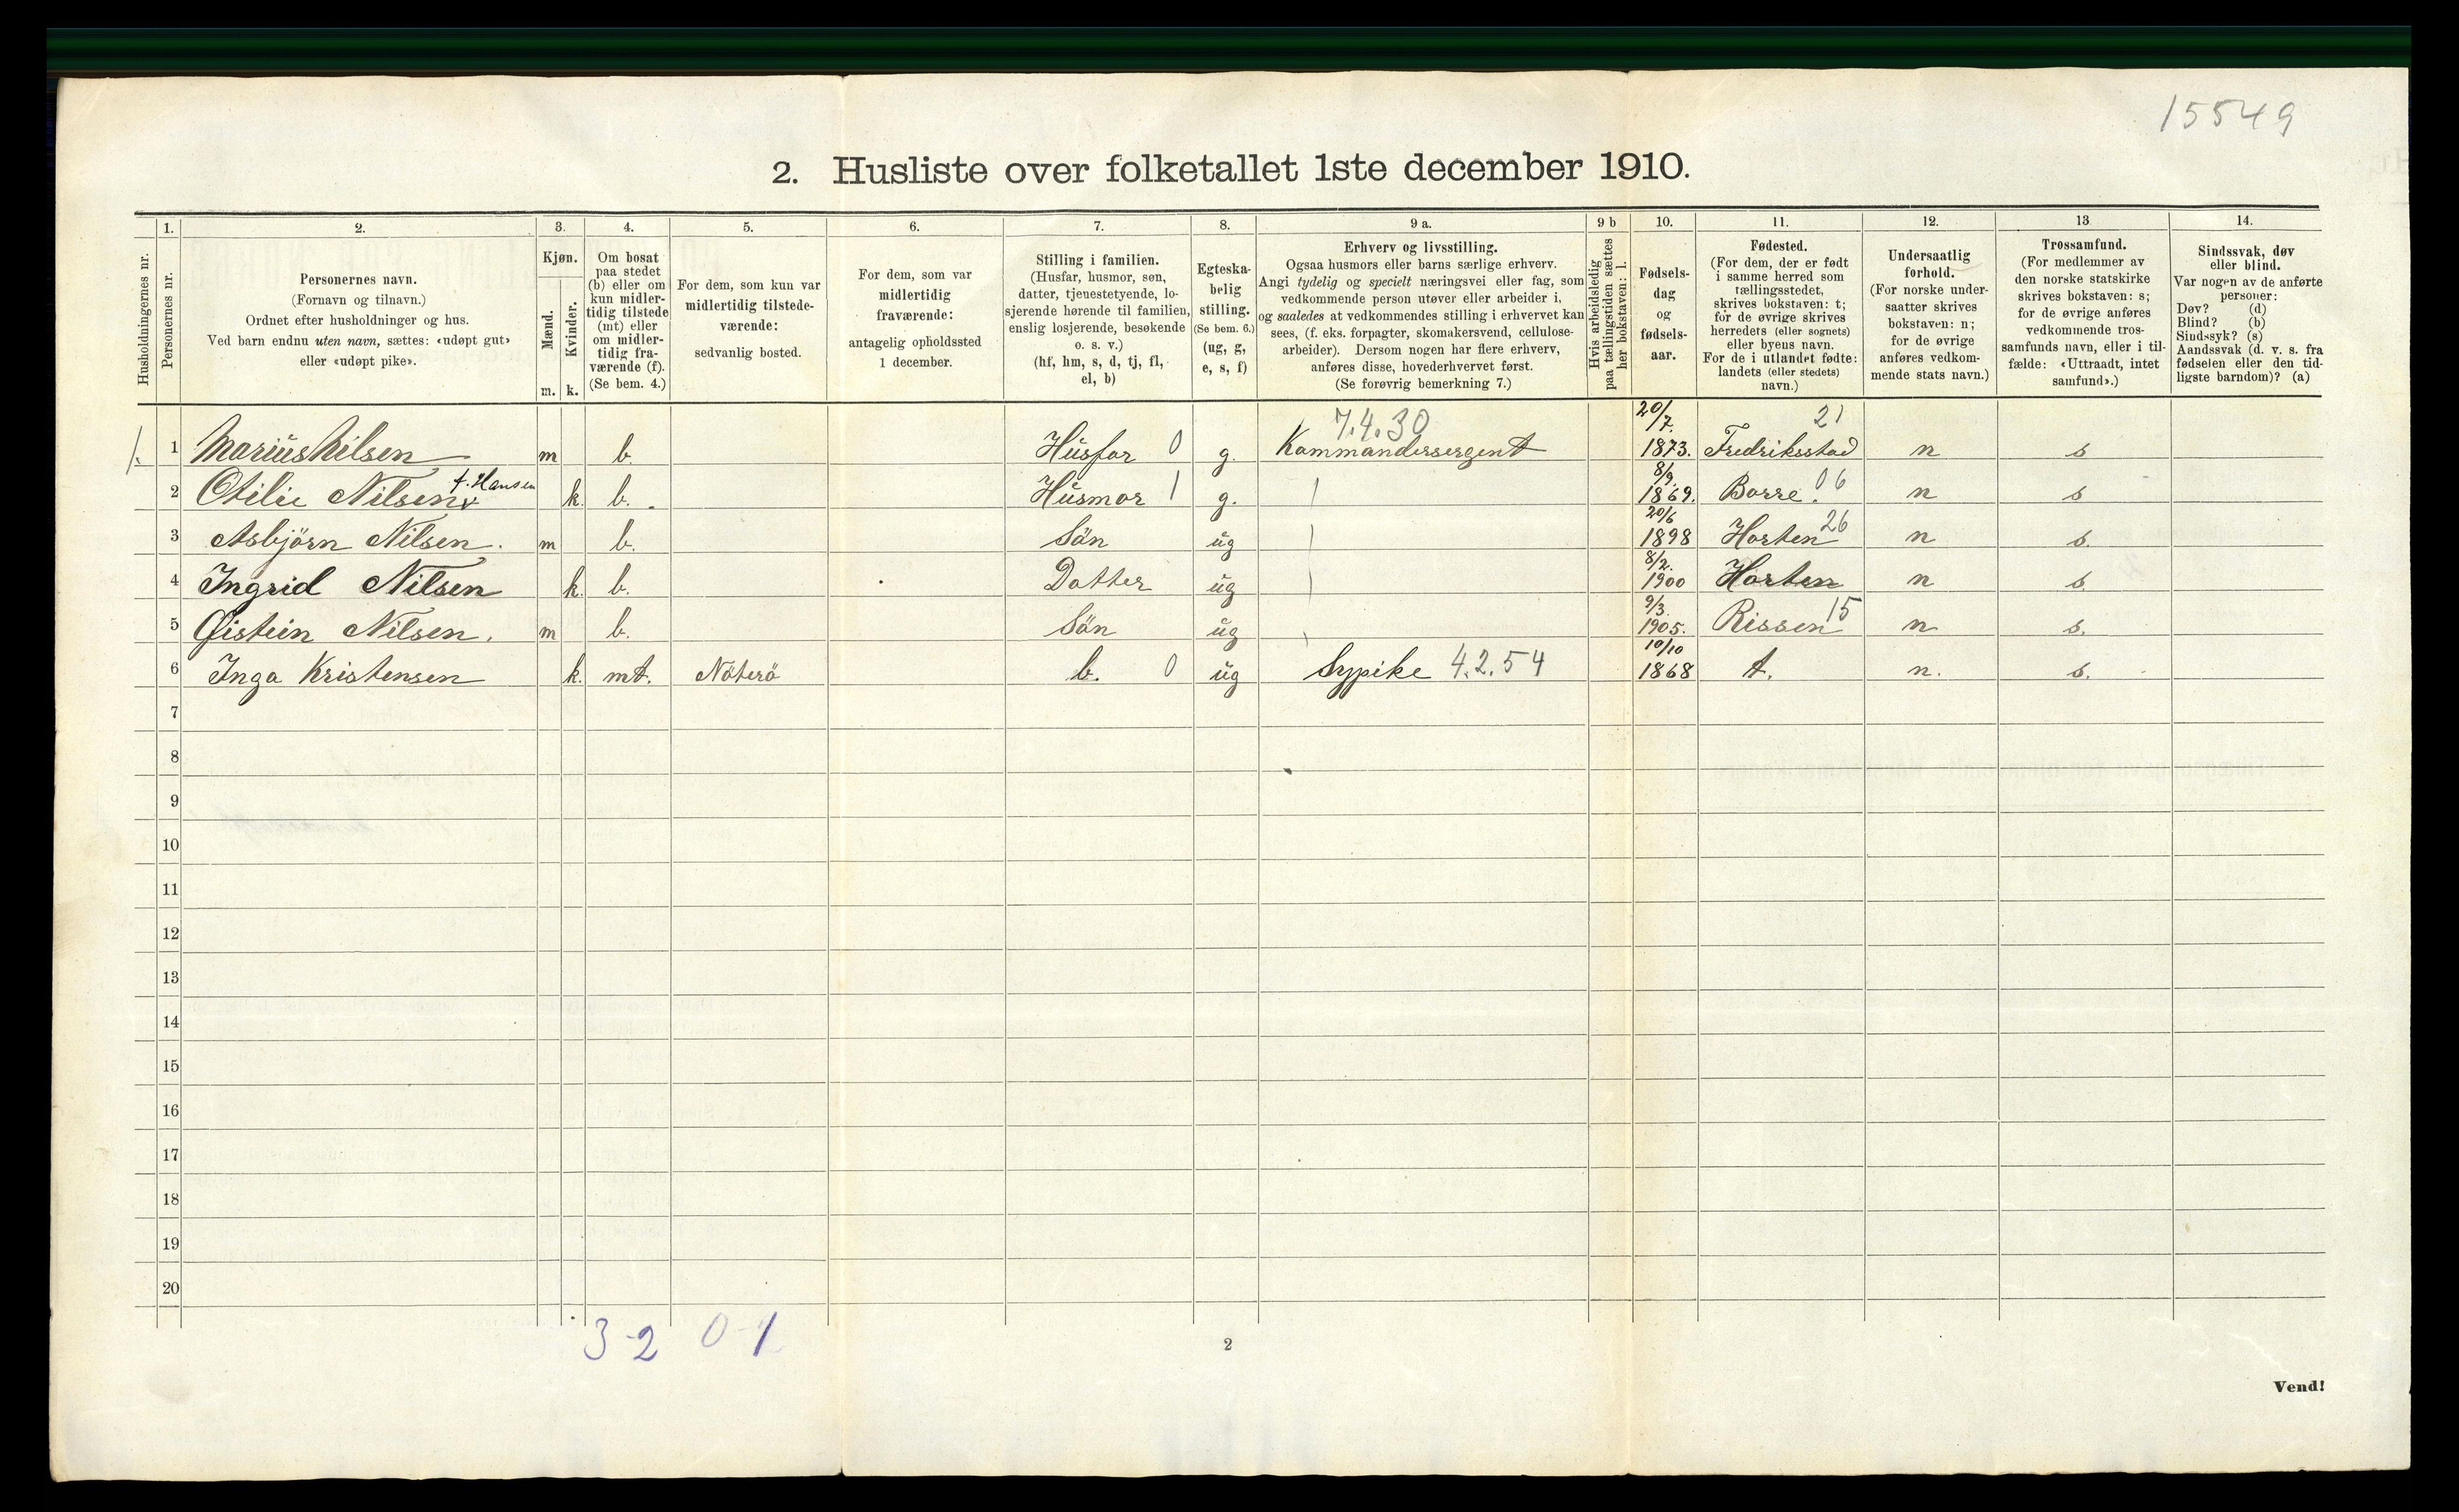 15549
2. Husliste over folketallet 1ste december 1910.
Husholdningernes nr.
1.
Personernes nr.
2.
Personernes navn.
(Fornavn og tilnavn.)
Ordnet efter husholdninger og hus.
Ved barn endnu uten navn, sættes: «udøpt gut»
eller «udøpt pike».
3.
Kjøn.
Mænd.
Kvinder.
m. k.
4.
Om bosat
paa stedet
(b) eller om
kun midler-
tidig tilstede
(mt) eller
om midler-
tidig fra-
værende (f).
(Se bem. 4.)
5.
For dem, som kun var
midlertidig tilstede-
værende:
sedvanlig bosted.
6.
For dem, som var
midlertidig
fraværende:
antagelig opholdssted
1 december.
7.
Stilling i familien.
(Husfar, husmor, søn,
datter, tjenestetyende, lo-
sjerende hørende til familien,
enslig losjerende, besøkende
o. s. v.)
(hf, hm, s, d, tj, fl,
el, b)
8.
Egteska-
belig
stilling.
(Se bem. 6.)
(ug, g,
e, s, f)
9 a.
Erhverv og livsstilling.
Ogsaa husmors eller barns særlige erhverv.
Angi tydelig og specielt næringsvei eller fag, som
vedkommende person utøver eller arbeider i,
og saaledes at vedkommendes stilling i erhvervet kan
sees, (f. eks. forpagter, skomakersvend, cellulose-
arbeider). Dersom nogen har flere erhverv,
anføres disse, hovederhvervet først.
(Se forøvrig bemerkning 7.)
9 b
Hvis arbeidsledig
paa tællingstiden sættes
her bokstaven: l.
10.
Fødsels-
dag
og
fødsels-
aar.
11.
Fødested.
(For dem, der er født
i samme herred som
tællingsstedet,
skrives bokstaven: t;
for de øvrige skrives
herredets (eller sognets)
eller byens navn.
For de i utlandet fødte:
landets (eller stedets)
navn.)
12.
Undersaatlig
forhold.
(For norske under-
saatter skrives
bokstaven: n;
for de øvrige
anføres vedkom-
mende stats navn.)
13
Trossamfund.
(For medlemmer av
den norske statskirke
skrives bokstaven: s;
for de øvrige anføres
vedkommende tros-
samfunds navn, eller i til-
fælde: «Uttraadt, intet
samfund».)
14.
Sindssvak, døv
eller blind.
Var nogen av de anførte
personer:
Døv? (d)
Blind? (b)
Sindssyk? (s)
Aandssvak (d. v. s. fra
fødselen eller den tid-
ligste barndom)? (a)
1. 1 Marius Nilsen m b. Husfar 0 g. 7.4.30 Kommandersergent 20/7. 1873. Fredriksstad 21 n s
2 Otilie Nilsen f. Hansen k. b. Husmor 1 g. 8/9. 1869. Borre. 06 n s
3 Asbjörn Nilsen. m b. Sön ug 20/6 1898 Horten 26 n s.
4 Ingrid Nilsen k. b. Datter ug 8/2. 1900 Horten n s.
5 Øistein Nilsen. m b. Sön ug 9/3. 1905. Rissen 15 n s.
6 Inga Kristensen k. mt. Nöterö b. 0 ug Sypike 4.2.54 10/10 1868 t. n. s.
7
8
9
10
11
12
13
14
15
16
17
18
19
20
3-2 0-1
2
Vend!